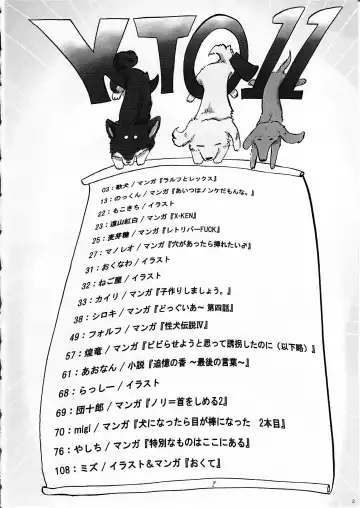 YTO!11
03：歌犬 / マンガ『ラルフとレックス』
13：のっくん / マンガ『あいつはノンケだもんな。』
22：もこきち / イラスト
23：遠山紅白 / マンガ『X-KEN』
25：麦芽糖 / マンガ『レトリバーFUCK』
27：マノレオ / マンガ『穴があったら挿れたい♂』
31：おくなわ / イラスト
32：ねご屋 / イラスト
33：カイリ / マンガ『子作りしましょう。』
38：シロキ / マンガ『どっぐいあ～ 第四話』
49：フォルフ / マンガ『性犬伝説Ⅳ』
57：煌竜 / マンガ『ビビらせようと思って誘拐したのに（以下略）』
61：あおなん / 小説『追憶の香 ～最後の言葉～』
68：らっしー / イラスト
69：団十郎 / マンガ『ノリ＝首をしめる2』
70：migi / マンガ『犬になったら目が棒になった　2本目』
76：やしち / マンガ『特別なものはここにある』
108：ミズ / イラスト＆マンガ『おくて』
2